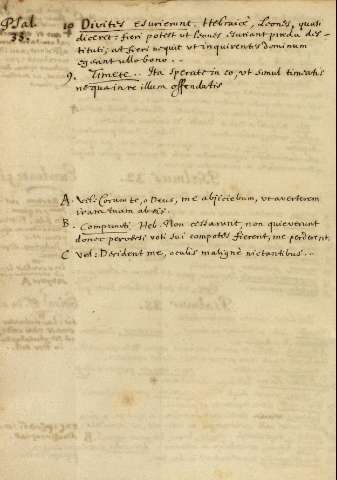 Psal. 33.
10 Divites esurierunt. Hebraicè, Leones, quasi
diceret: fieri potest ut leones esuriant præda des-
tituti; at fieri nequit ut inquirentes dominum
egeant ullo bono..
9. Timete.. Ita sperate in eo, ut simul timeatis
ne qua in re illum offendatis
A. vel: Coram te, o Deus, me abjiciebam, ut averterem
iram tuam ab eis.
B. Compuncti Heb. Non cessarunt, non quieverunt
donec perversi voti sui compotes fierent, me perderent.
C vel: Derident me, oculis malignè nictantibus..